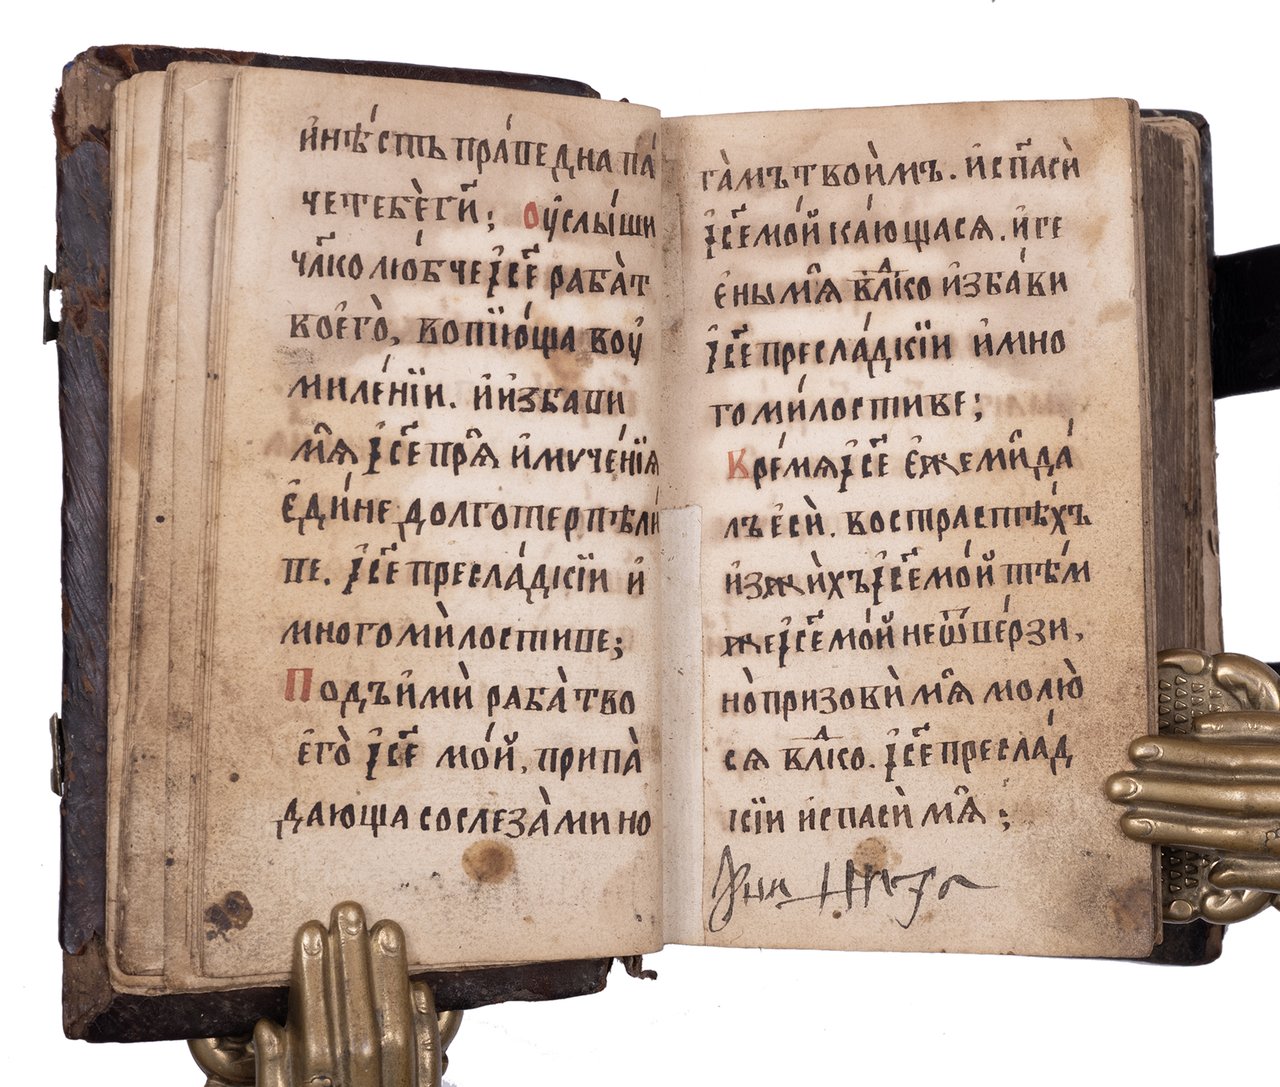 и҆нѣ́сть пра́ведна па́
че тебѐ є҆ги҃; ѹ҆слы́ши
чл҃колю́бче і҆с҃е раба̀ т
воего̀, вопїю́ща воу҆
миле́нїи. и҆ и҆збави
мѧ̑ і҆с҃е прⷭ҇ѧ и҆ мѵче́нїѧ
є҆ди́не долготерпѣли
ве. і҆с҃е пресла́дкїи и҆
многоми̇лостиве;
Подъи҆мѝ раба̀ тво
его̀ і҆с҃е мо́й, припа̀
дающа со слеза̀ми но
га̀мъ твои̇мъ. и҆ сп҃асѝ
і҆с҃е мо́й ка́ющасѧ. и҆ ге
є҆ны мѧ̑ влⷣко и҆зба́ви
і҆с҃е пресла́дкїи и҆ мно
гоми́лостиве;
Време́ѧ і҆с҃е є҆же ми̑ да́
лъ є҆сѝ. во страстѣ́хъ
и҆зжи̇хъ і҆с҃е мо́й тѣ́м
же і҆с҃е мо́й не ѿве́рзи,
но̀ призовѝ мѧ̑ молю̀
сѧ влⷣко. і҆с҃е преслад́
кїи и҆ спасѝ мѧ̑;